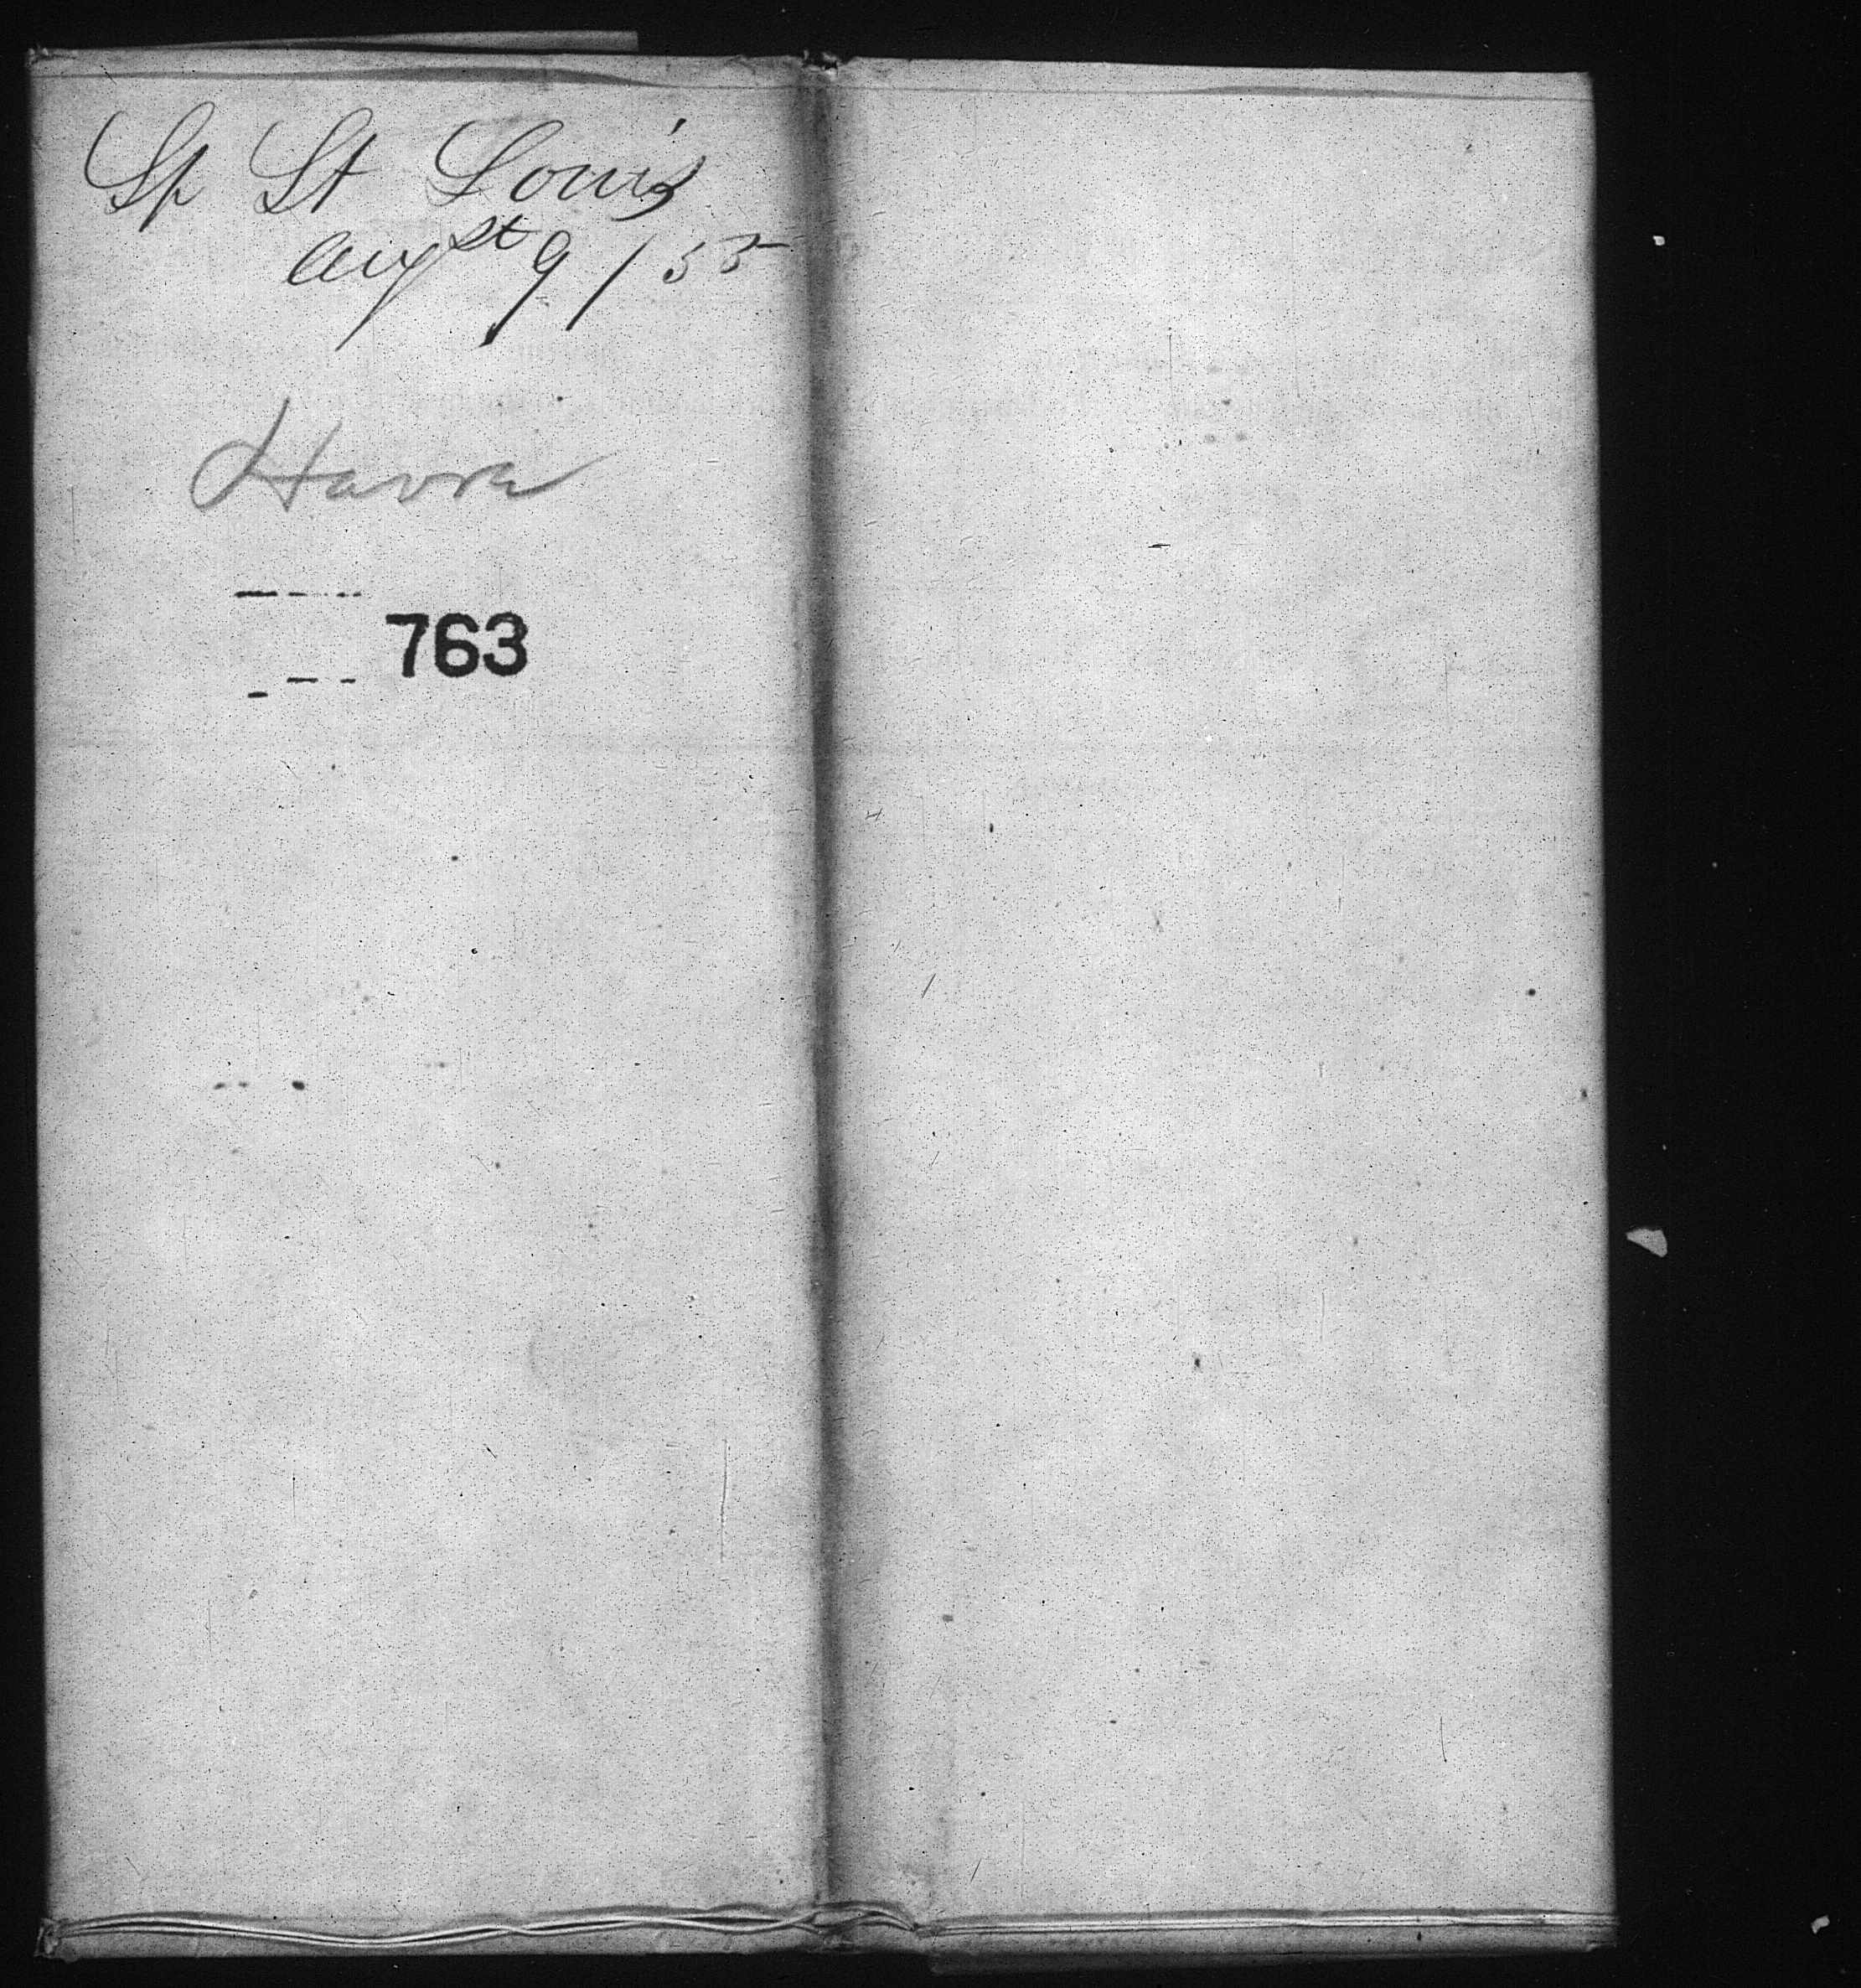 Sp St Louis
Augst 9/55
Havre
763